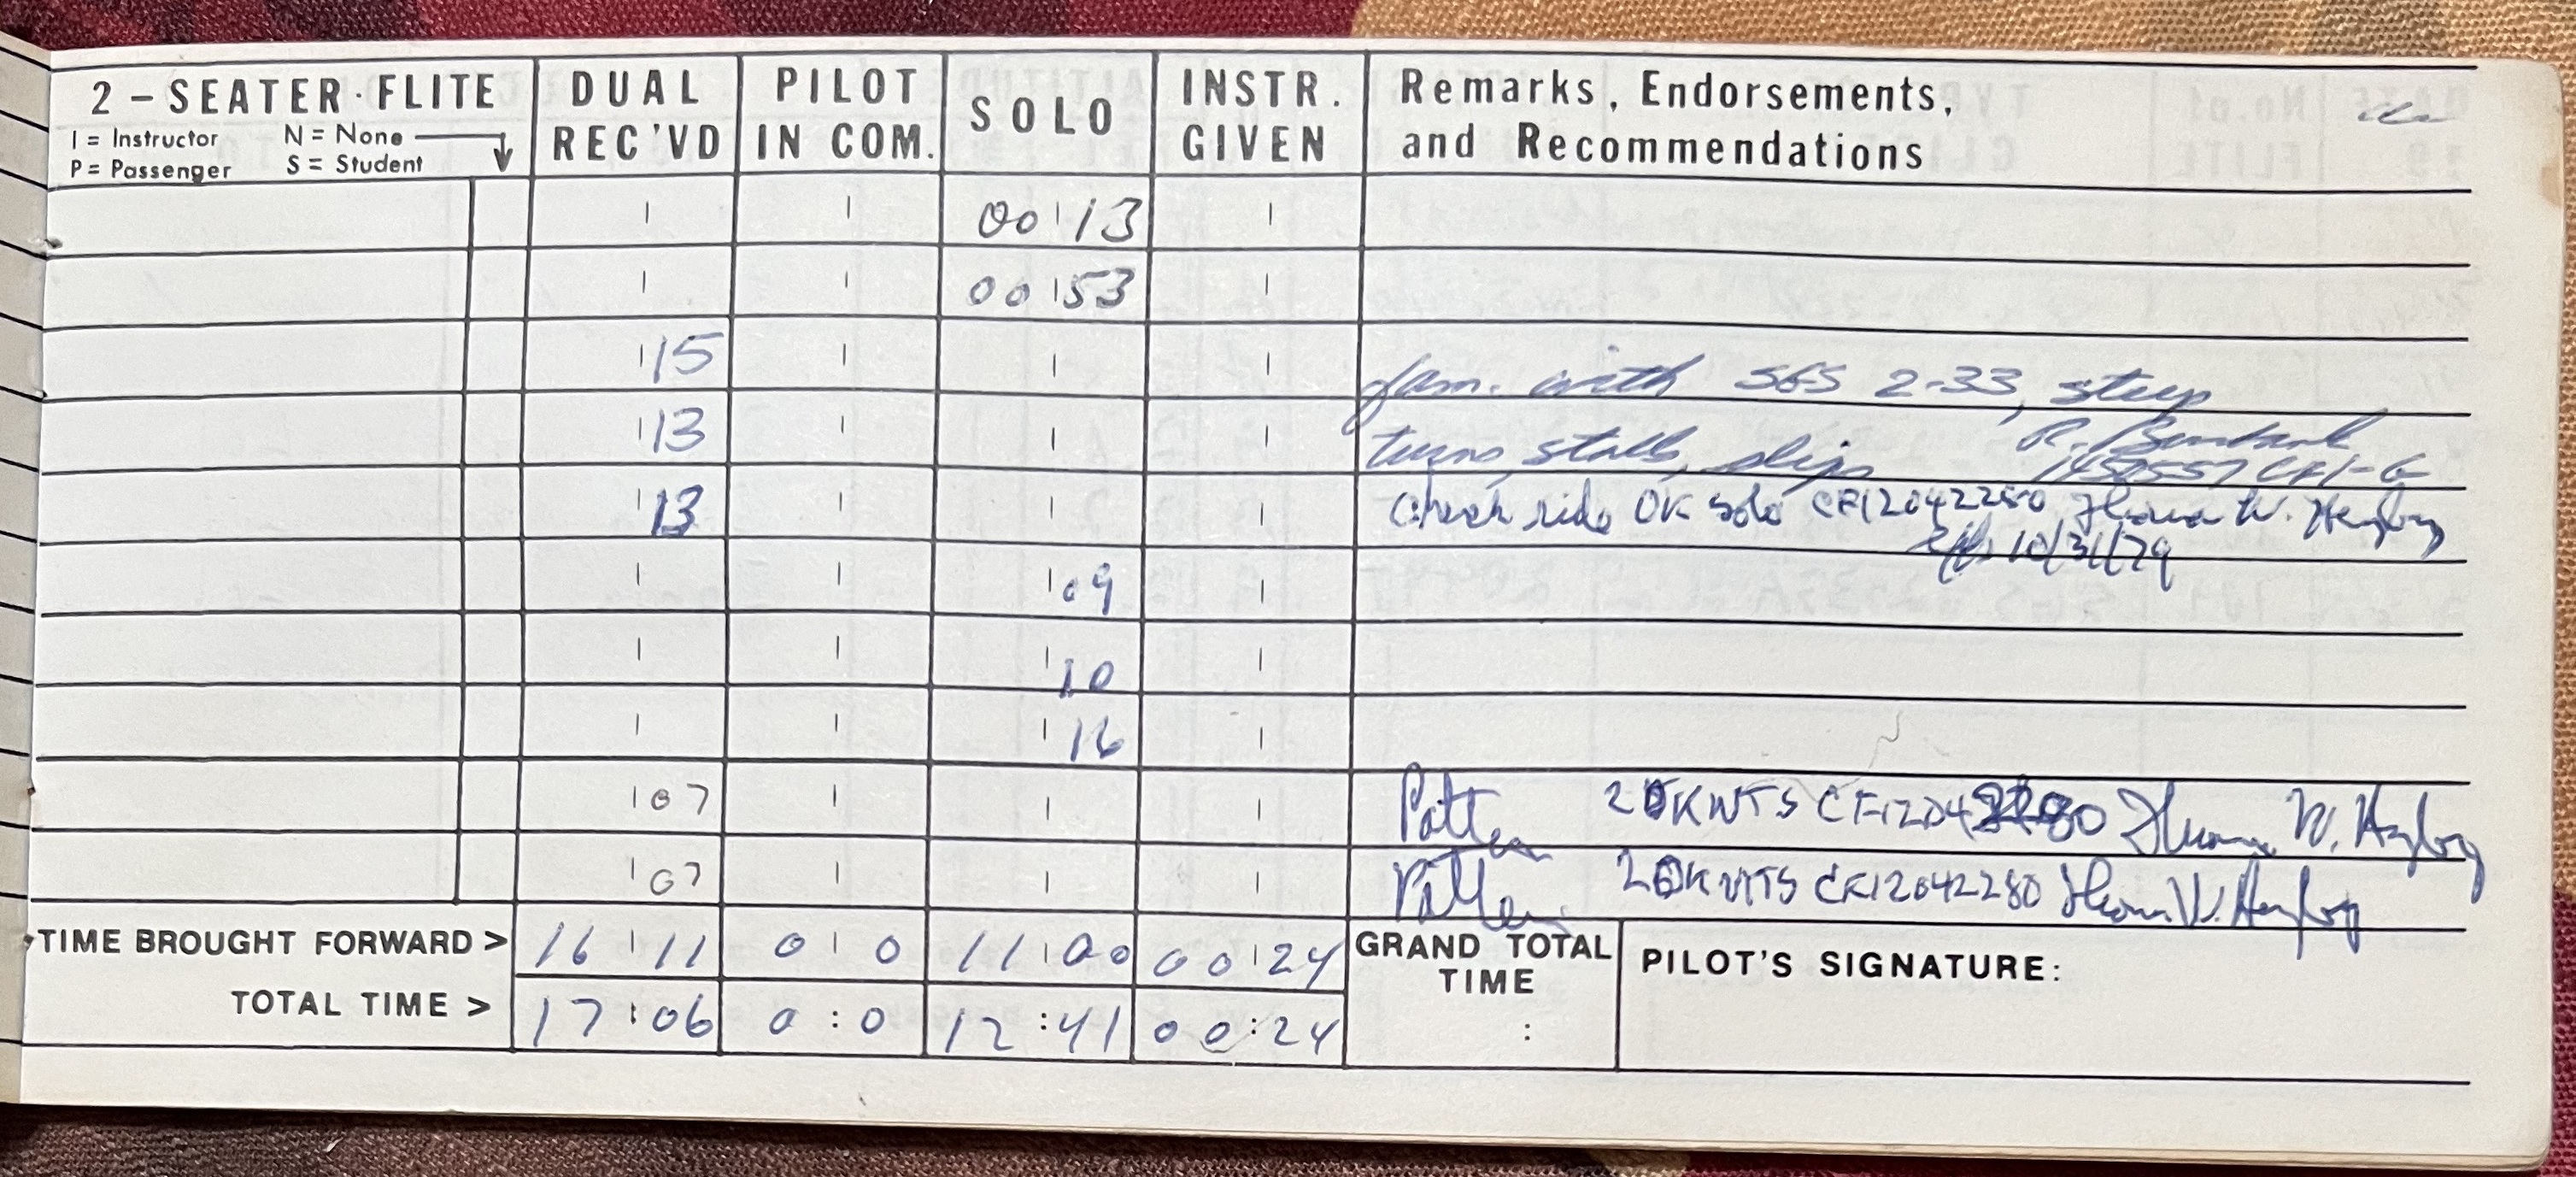 2 - SEATER · FLITE DUAL REC'VD PILOT IN COM. SOLO INSTR. GIVEN Remarks, Endorsements, and Recommendations
I = Instructor N = None
P = Passenger S = Student
00 13
00 53
15 fam. with SGS 2-33, steep
13 turns, stalls, slips R.
CFI-G
13 Check ride OK solo CFI 2042280 Thomas W.
10/31/79
09
10
16
07 Pattern 20 KNTS CFI 2042280 Thomas W.
07 Pattern 20 KNTS CFI 2042280 Thomas W.
TIME BROUGHT FORWARD > 16 11 0 0 11 00 00 24 GRAND TOTAL TIME : PILOT'S SIGNATURE:
TOTAL TIME > 17:06 0:0 12:41 00:24